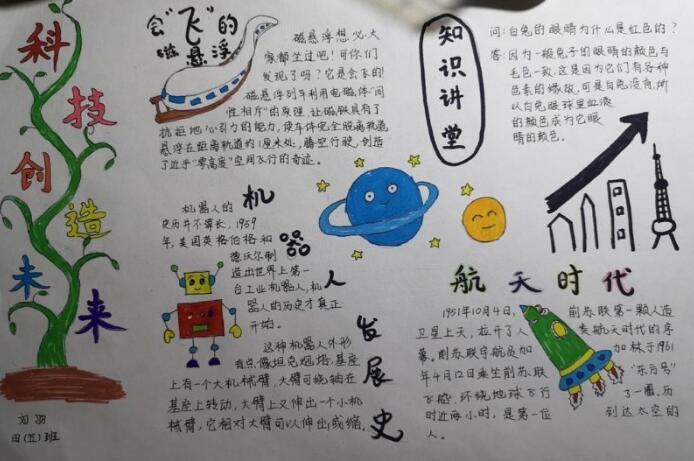 科技创造未来
会“飞”的
磁悬浮
磁悬浮想必大
家都坐过吧！可你们
发现了吗？它是会飞的！
磁悬浮列车利用电磁体“同
性相斥”的原理，让磁铁具有了
抗拒地心引力的能力，使车体完全脱离轨道，
悬浮在距离轨道约1厘米处，腾空行驶，创造
了近乎“零高度”空间飞行的奇迹。
知识讲堂
问：白兔的眼睛为什么是红色的？
答：因为一般兔子的眼睛的颜色与
毛色一致，这是因为它们有各种
色素的缘故，可是白兔没有，所
以白兔眼球里血液
的颜色成为它眼
睛的颜色。
机器人发展史
机器人的
史历并不算长，1959
年，美国英格伯格和
德沃尔制
造出世界上第一
台工业机器人，机
器人的历史才真正
开始。
这种机器人外形
有点像坦克炮塔，基座
上有一个大机械臂，大臂可绕轴在
基座上转动，大臂上又伸出一个小机
械臂，它相对大臂可以伸出或缩。
航天时代
1951年10月4日，前苏联第一颗人造
卫星上天，拉开了人类航天时代的序
幕。前苏联宇航员加加林于1961
年4月12日乘坐前苏联“东方号”
飞船，环绕地球飞行了一圈。历
时近两小时，是第一位到达太空的
人。
四(五)班